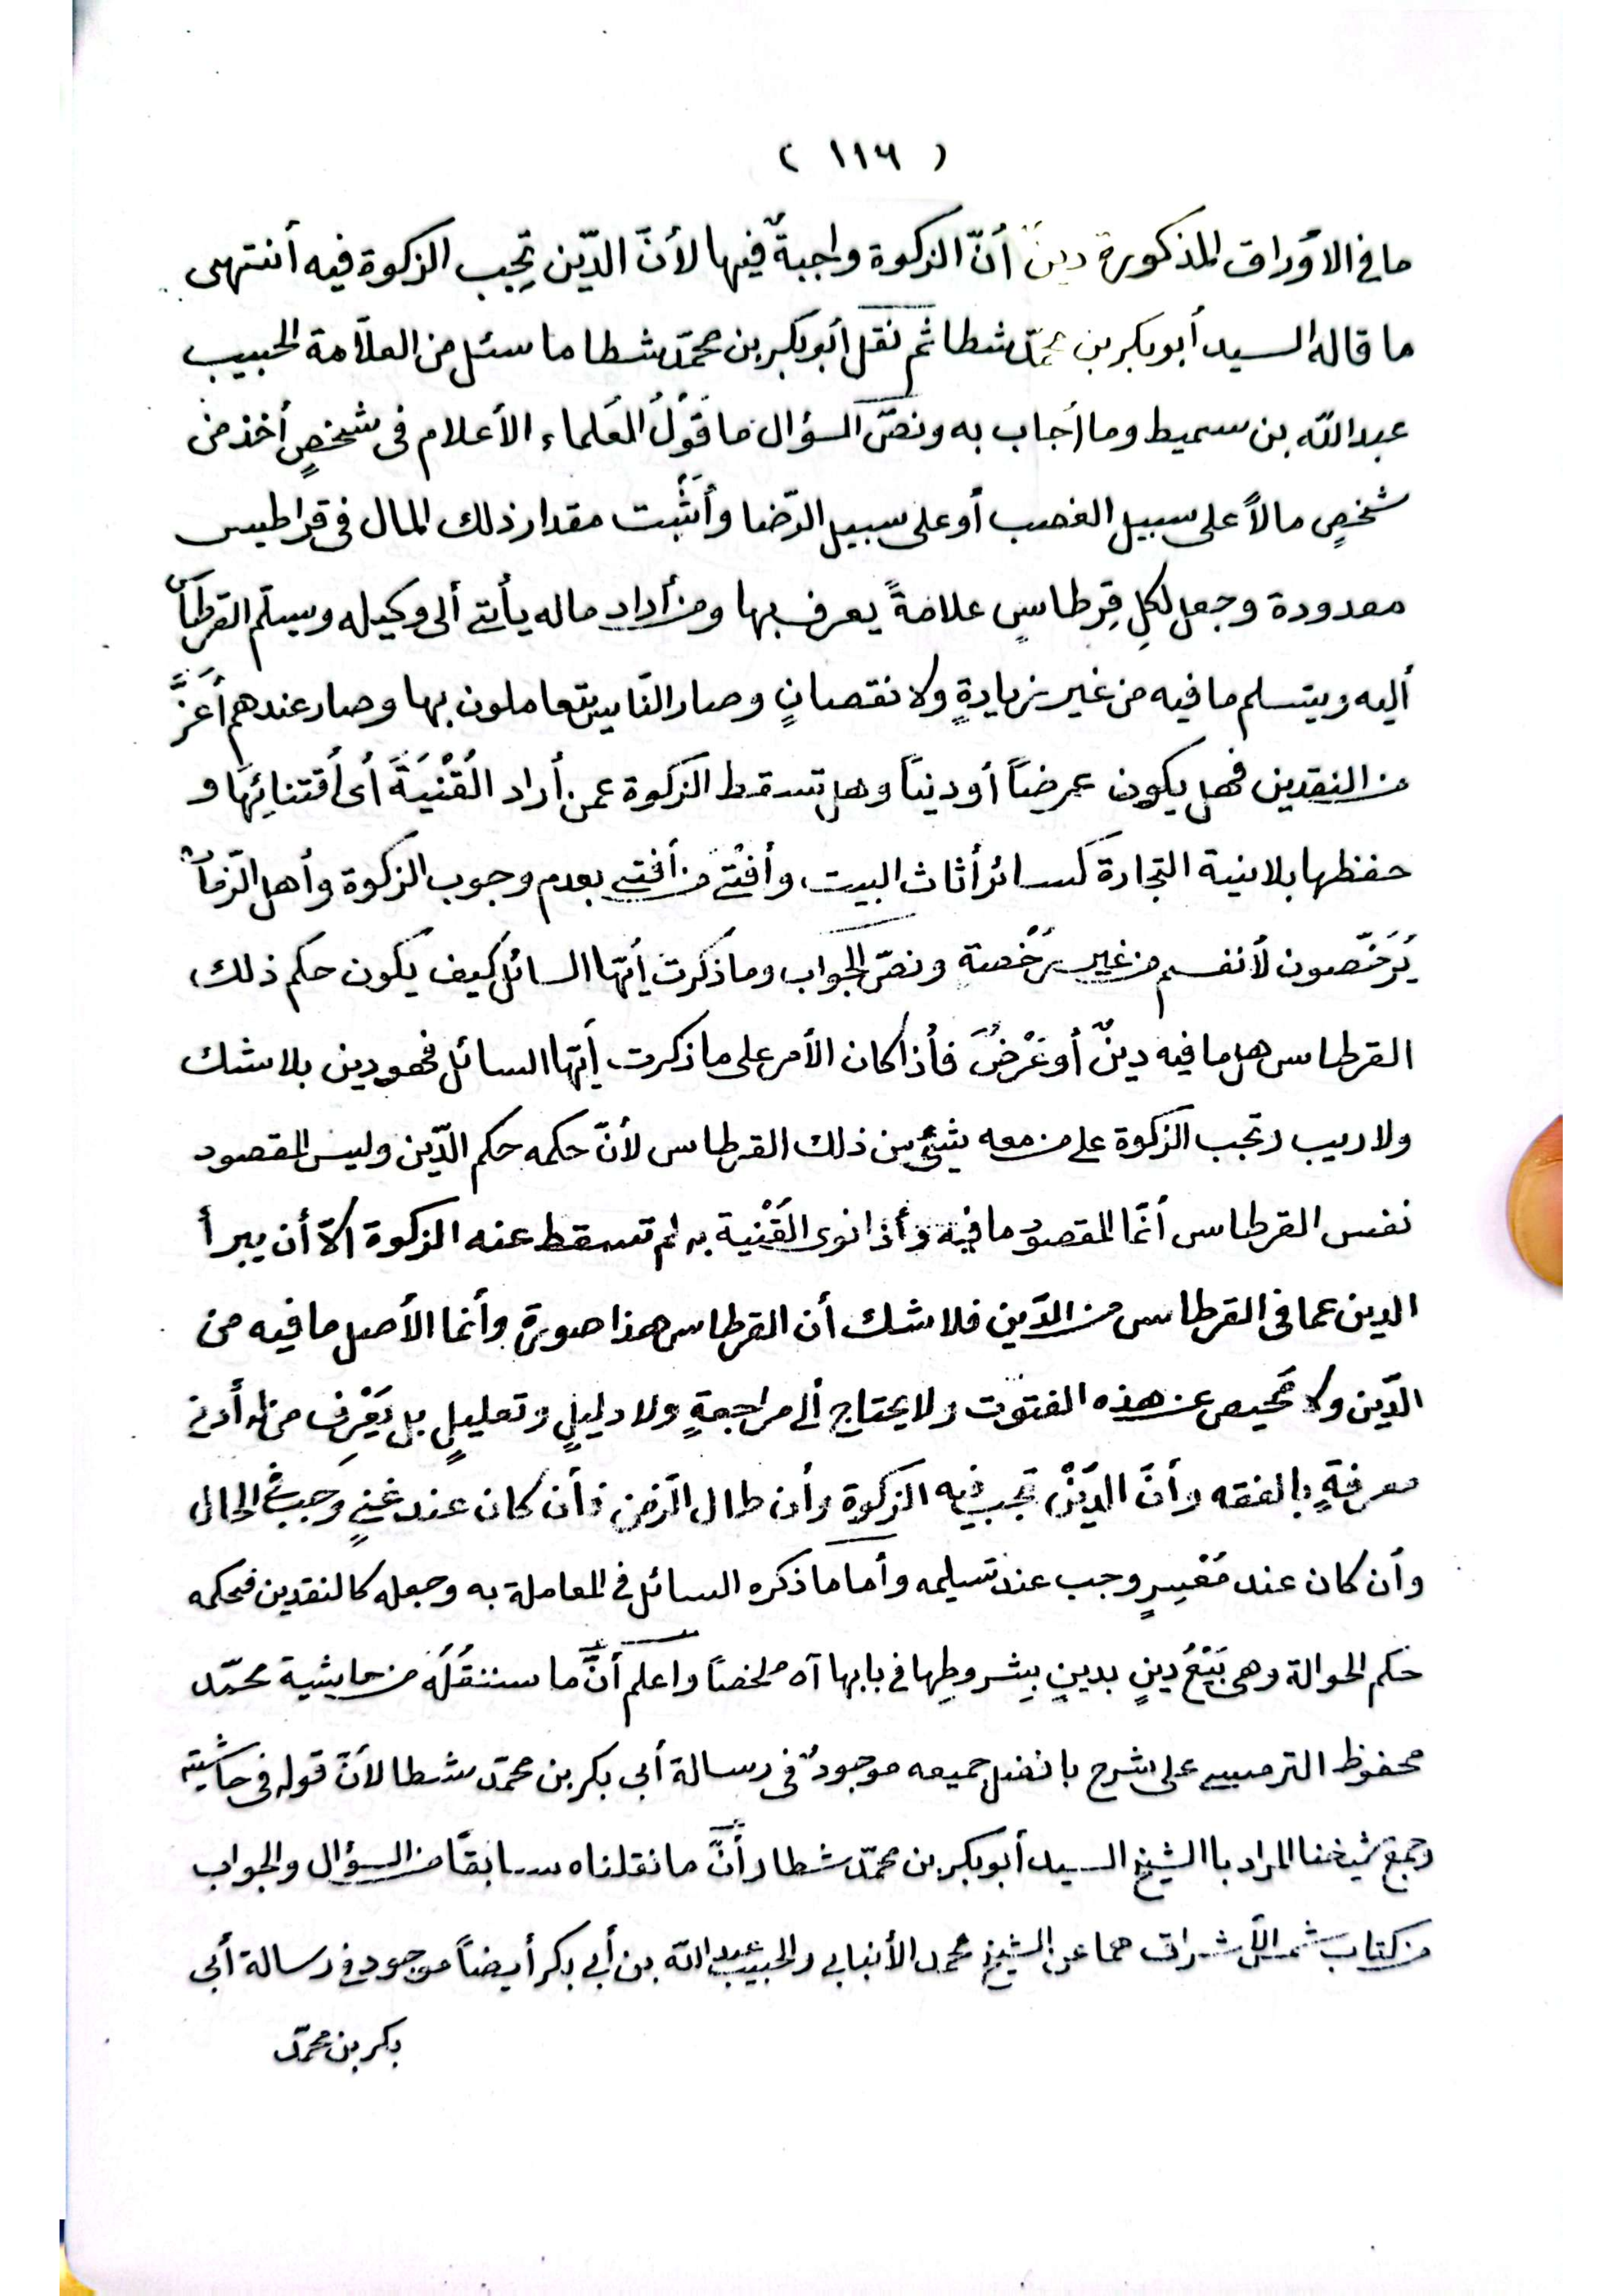 ( ١١٦ )
ما في الأوراق المذكورة دين أنّ الزكوة واجبةٌ فيها لأنّ الدّين تجِب الزكوة فيه أنتهى
ما قاله السيد أبو بكر بن محمّد شطا ثم نقل أبو بكر بن محمّد شطا ما سئل من العلاّمة الحبيب
عبد اللّه بن سميط وما أجاب به ونصّ السؤال ما قَوْلُ العُلماء الأعلام فى شخصٍ أخذ من
شخصٍ مالاً على سبيل الغصب أو على سبيل الرّضا وأَثْبت مقدار ذلك المال فى قراطيس
معدودة وجعل لكلِ قِرطاسٍ علامةً يعرف بها ومن أراد ماله يأتى ألى وكيله ويسلّم القرطاس
أليه ويتسلم ما فيه من غير زيادةٍ ولا نقصانٍ وصار النّاس يتعاملون بها وصار عندهم أَعَزَّ
من النقدين فهل يكون عرضاً أو ديناً وهل تسقط الزكوة عمن أراد القُنْيَةَ أى أقتنائِهَا و
حفظها بلا نية التجارة كسائر أثاث البيت وأفْتَى من أفتى بعدم وجوب الزكوة وأهل الزّمان
يُرَخّصون لأنفسهم من غير رُخْصة ونصّ الجواب وما ذكرت أيّها السائل كيف يكون حكم ذلك
القرطاس هل ما فيه دينٌ أو عَرْضٌ فأذا كان الأمر على ما ذكرت أيّها السائل فهو دين بلا شك
ولا ريب وتجب الزكوة على من معه شئ من ذلك القرطاس لأنّ حكمه حكم الدّين وليس المقصود
نفس القرطاس أنّما المقصود ما فيه وأذا نوى القُنْية به لم تسقط عنه الزكوة الاّ أن يبرأ
الدين عما فى القرطاس من الدّين فلا شك أن القرطاس هذا صورة وأنما الأصل ما فيه من
الدّين ولا محيص عن هذه الفتوت ولا يحتاج ألى مراجعةٍ ولا دليلٍ وتعليلٍ بل يَعْرِف من له أدنى
معرفةٍ بالفقه وأنّ الدَيْنَ تجب فيه الزكوة وأن طال الزمن فأن كان عند غنيٍ وجبت الحال
وأن كان عند مُعْسِرٍ وجب عند تسليمه وأما ما ذكره السائل في المعاملة به وجعله كالنقدين فحكمه
حكم الحوالة وهى بَيْعُ دينٍ بدينٍ بِشروطِها فى بابها آه ملخصاً واعلم أنَّ ما سننقُلُه من حاشية محمّد
محفوظ الترمسى على شرح بافضل جميعه موجودٌ فى رسالة أبى بكر بن محمّد شطا لأنّ قوله فى حاشيته
وجمع شيخنا المراد باالشيخ السيد أبو بكر بن محمّد شطا وأنَّ ما نقلناه سابقًا من السؤال والجواب
من كتاب شمس الأشراق هما عن الشيخ محمد الأنبابى والحبيب عبد اللّه بن أبى بكر أيضاً موجود فى رسالة أبى
بكر بن محمّد